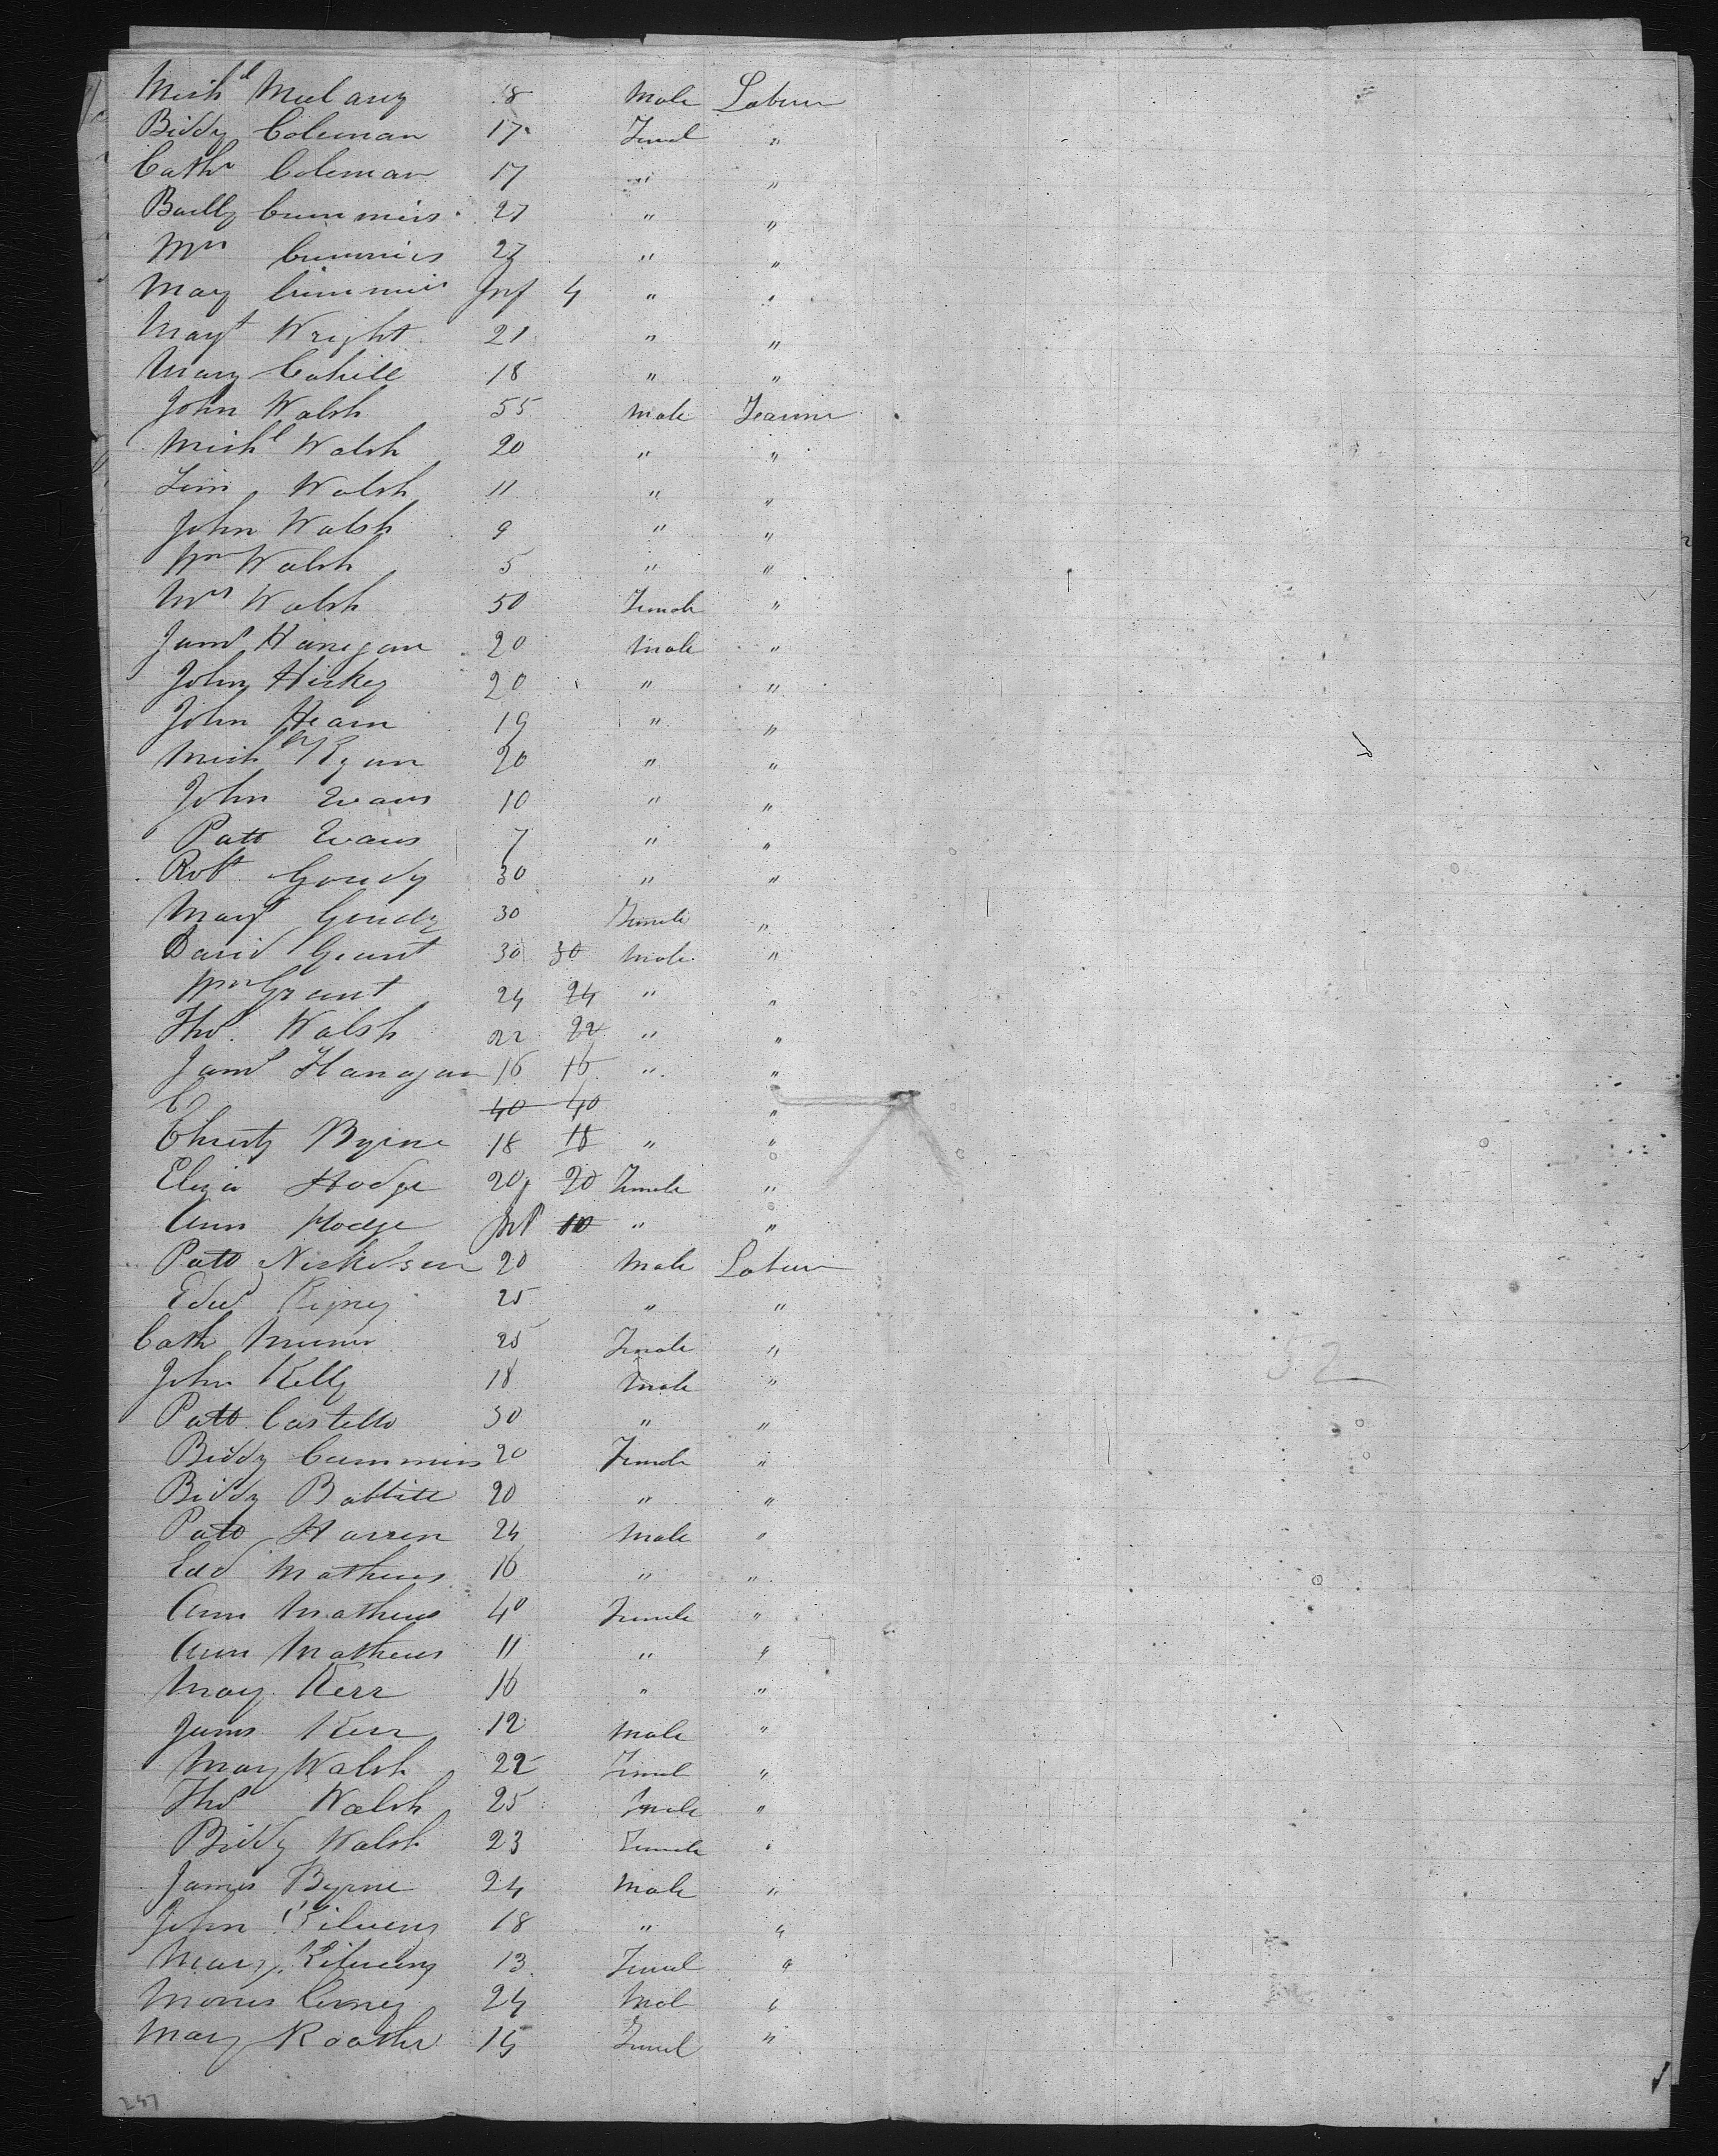 Michl Mulany 8 Male Labour
Biddy Coleman 17 Femal "
Cath Coleman 17 " "
Bailly Cummins 27 " "
Mrs Cummins 27 " "
Mary Cummins Inf 4 " "
Mayt Wright 21 " "
Mary Cahill 18 " "
John Walsh 55 Male Farmer
Michl Walsh 20 " "
Tim Walsh 11 " "
John Walsh 9 " "
Wm Walsh 5 " "
Mrs Walsh 50 Female "
Jams Hanegan 20 Male "
John Hickey 20 " "
John Hearn 19 " "
Michl Ryan 20 " "
John Evans 10 " "
Patt Evans 7 " "
Robt Goudy 30 " "
Mayt Goudy 30 Female "
David Grant 30 30 Male "
Wm Grant 24 24 " "
Thos. Walsh 22 22 " "
Jams Flanagan 16 16 " "
C 40 40 "
Christy Byrne 18 18 " "
Eliza Hodge 20 20 Female "
Ann Hodge Inf 10 " "
Patt Nickolson 20 Male Labour
Edwd 25 " "
Cath 25 Female "
John Kelly 18 Male "
Patt Castello 30 " "
Biddy Cummins 20 Female "
Biddy 20 " "
Patt Harren 24 Male "
Edd Mathews 16 " "
Ann Mathews 40 Female "
Ann Mathews 11 " "
May Kerr 16 " "
James Kerr 12 Male "
May Walsh 22 Femal "
Thos Walsh 25 Male "
Biddy Walsh 23 Female "
James Byrne 24 Male "
John 18 " "
Mary 13 Femal "
Morris 24 Mal "
Mary 15 Femal "
52
247